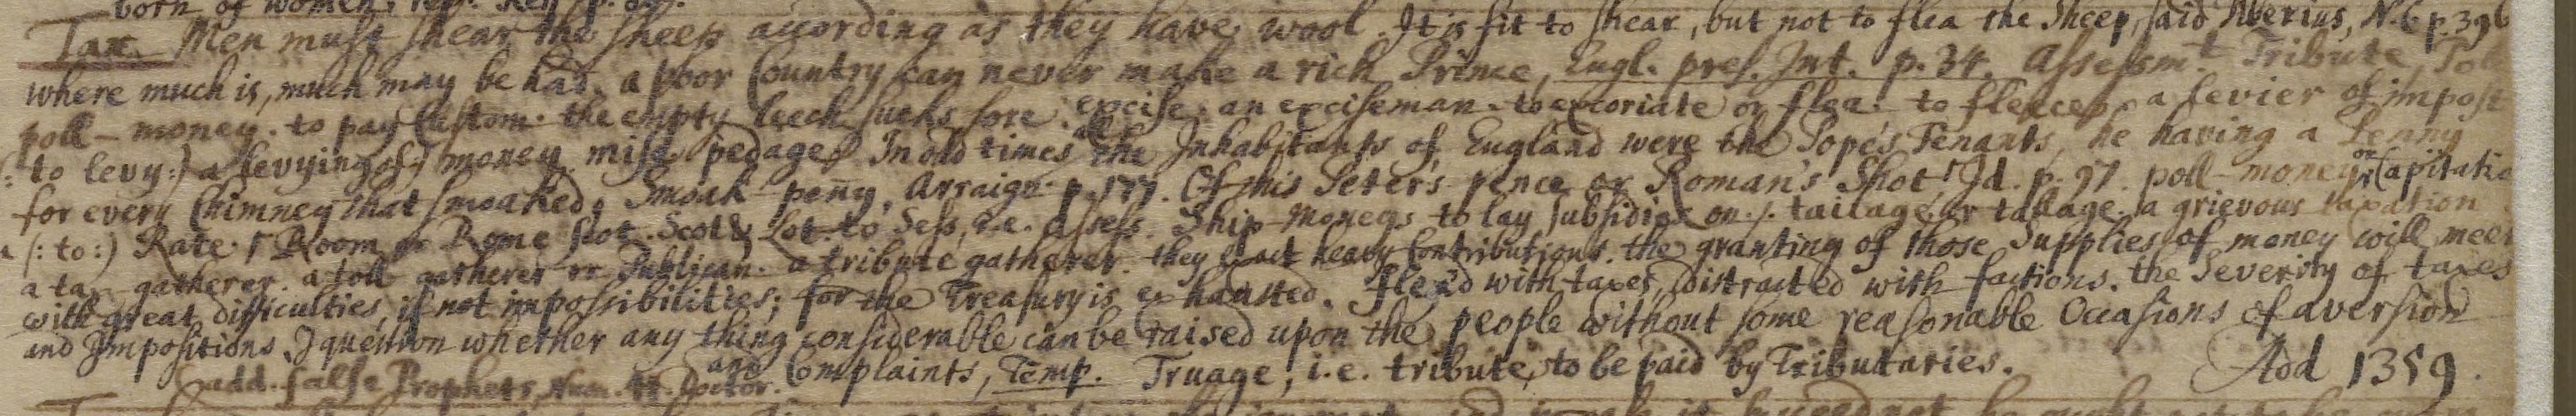 born of women,
Tax. Men must shear the sheep according as they have wool. It is fit to shear, but not to flea the Sheep, said Tiberius, N.C p. 396
where much is, much may be had. a poor Country can never make a rich Prince, Engl. pres. Int. p. 34. Assessmt Tribute Toll
poll-money. to pay Custom. the empty leech sucks sore. excise. an exciseman. to excoriate or flea. to fleece. a levier of impost
(: to levy:) a levying of money. mise pedage. In old times all the Inhabitants of England were the Pope's Tenants, he having a Penny
for every Chimney that smoaked, Smoak-penny, Arraign. p. 177. Of this Peter's pence or Roman's Shot Id. p. 97. poll-money or Capitatio
a (: to:) Rate. Room or Rome scot. Scot & Lot. to Sess, i.e. assess. Ship-money. to lay subsidies on. tailage or tallage. a grievous taxation
a tax-gatherer. a toll gatherer or Publican. a tribute gatherer. they exact heavy Contributions. the granting of those Supplies of money will meet
with great difficulties, if not impossibilities; for the Treasury is exhausted. flea'd with taxes, distracted with factions. the Severity of taxes
and Impositions. I question whether any thing considerable can be raised upon the people without some reasonable Occasions of aversion
and Complaints, Temp. Truage, i.e. tribute, to be paid by Tributaries. Aod 1359.
add. false Prophets, Num. Doctor.